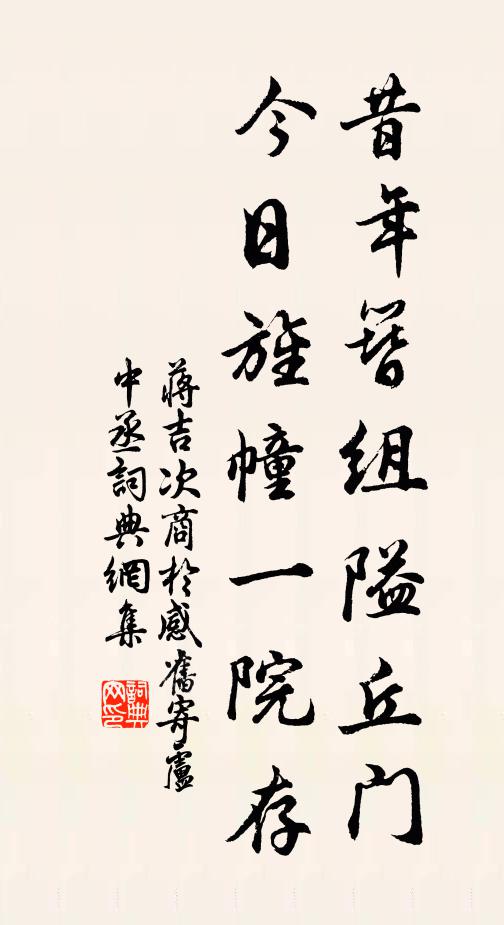 昔年簪組隘丘門
今日旌幢一院存
蔣吉次商於感舊寄盧
中丞詞典網集
詞典
网印